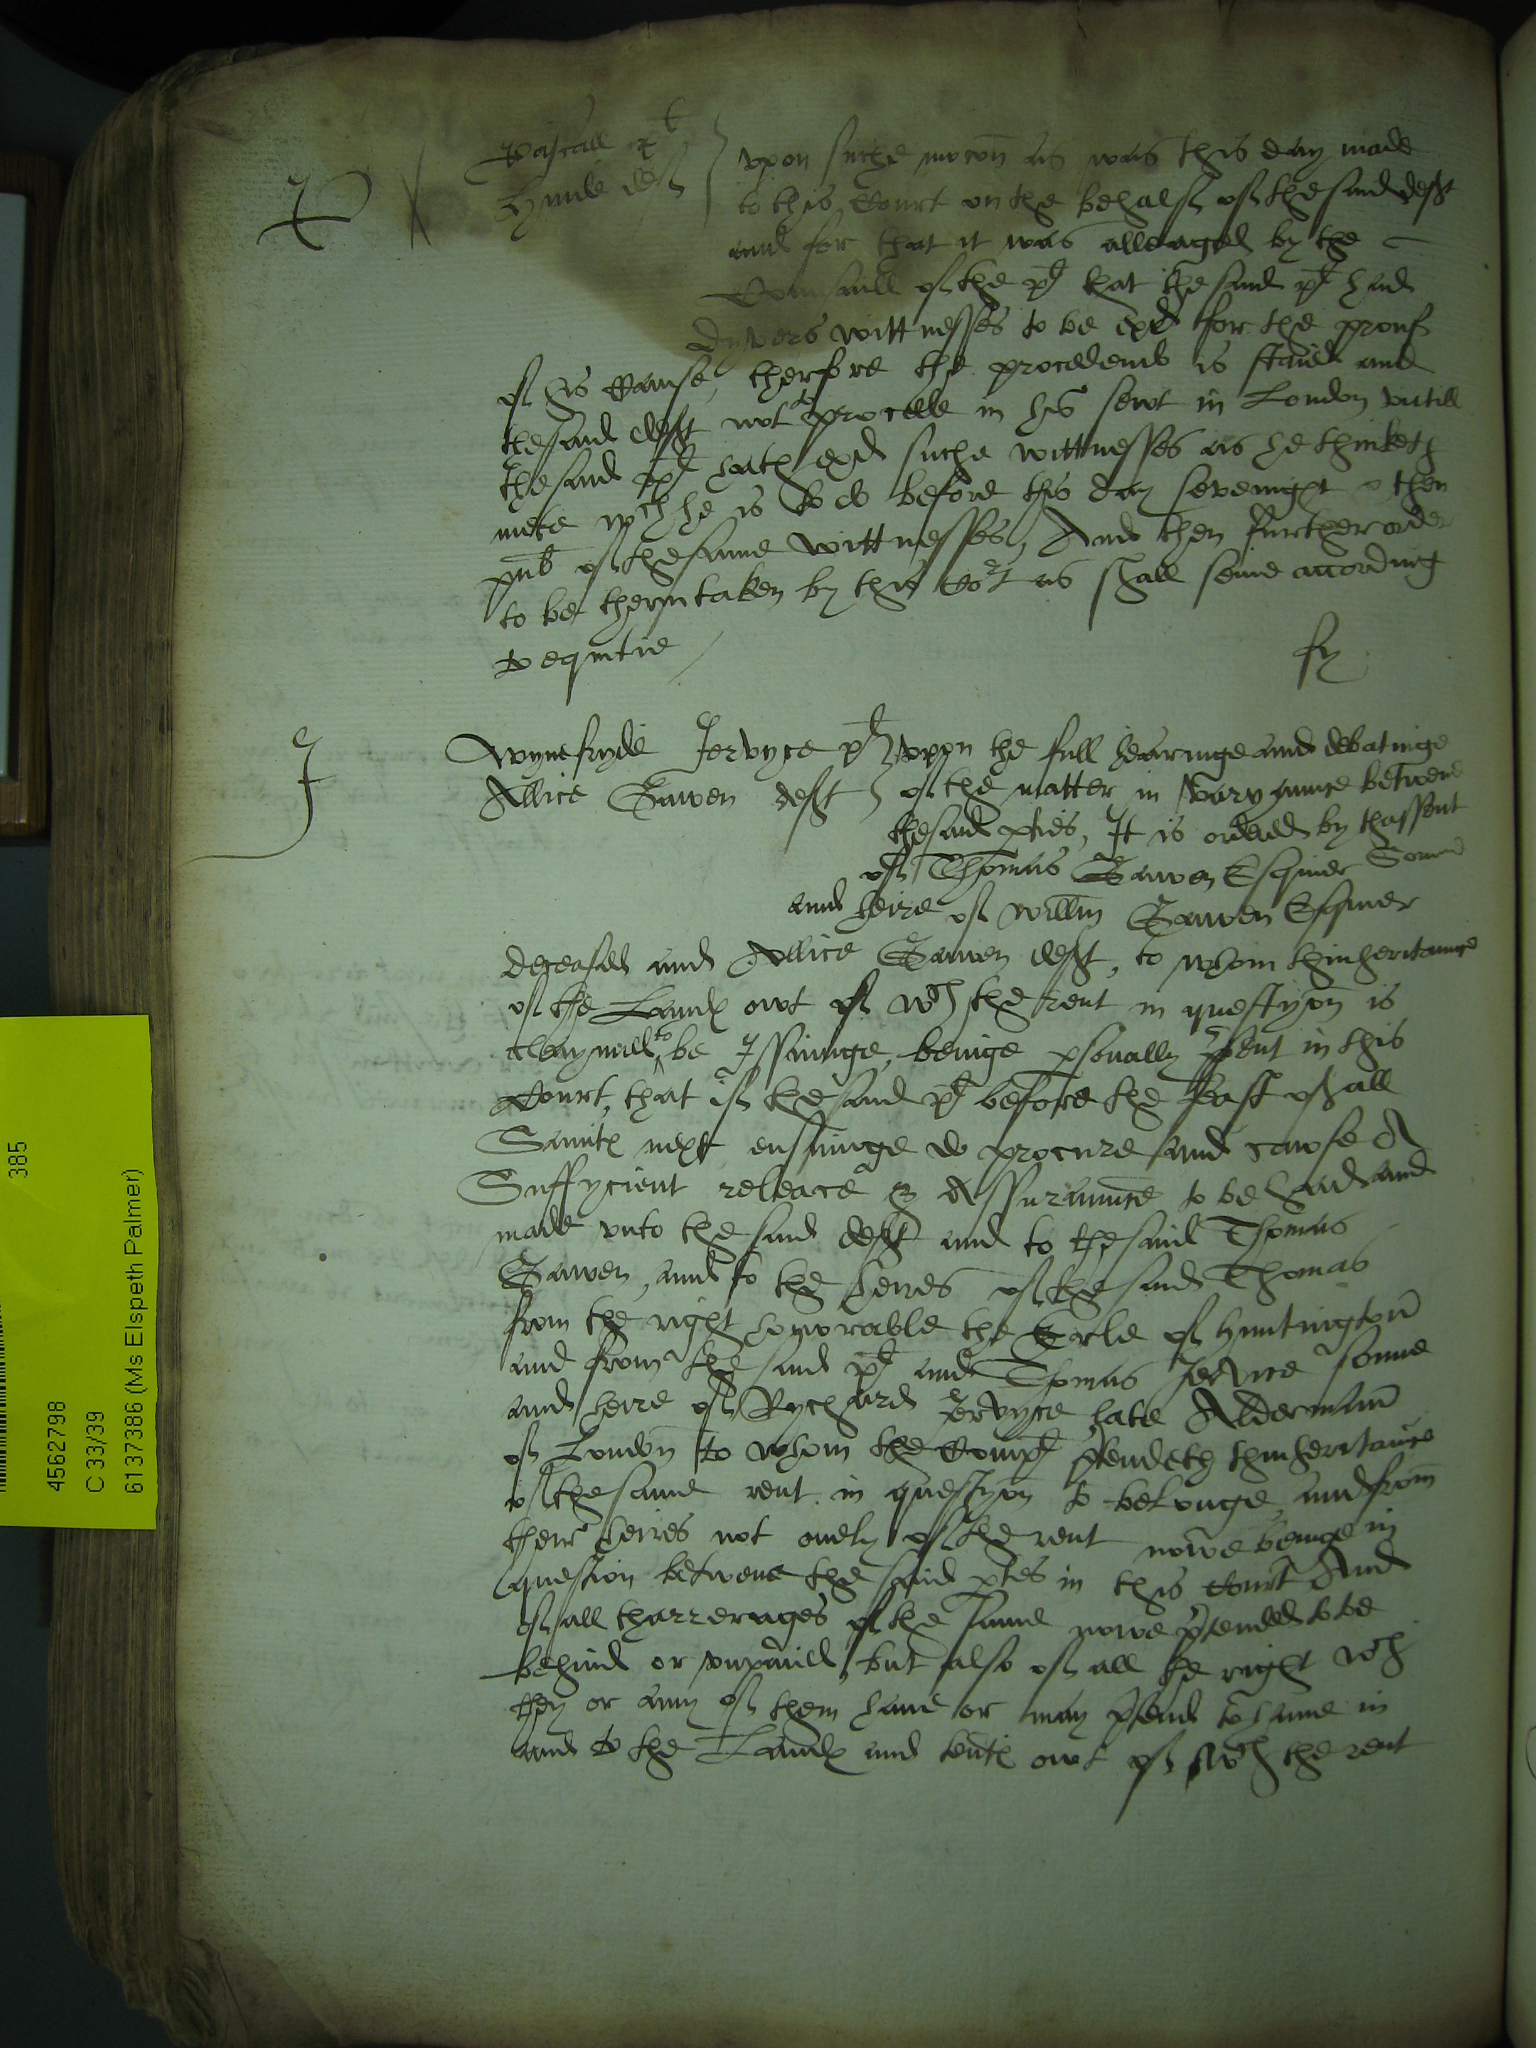 P
Pascall plt
Hynde deft
vpon suche mocon as was this day made
to this Court on the behalf of the said deft
and for that it was alleaged by the
Counsaill of the pl that the said pl had
dyvers wittnesses to be exd for the prouf
of his cause, therfore the procedendo is staid and
thesaid deft not to procede in his sewt in London vntill
thesaid pl hath exd suche wittnesses as he thinketh
mete wch he is to do before this day sevenight & then
pub of thesame wittnesses, And then further order
to be therin taken by this Cort as shall seme according
to equitie
fy
J
Wynefryde Jervyce pl
Allice Gawen deft
vpon the full hearinge and debatinge
of the matter in varyaunce betwene
thesaid pties, It is ordered by thassent
of Thomas Gawen Esquier Sonne
and heire of Willm Gawen Esquier
deceased and Allice Gawen deft, to whom thinheritaunce
of the Lands owt of wch the rent in questyon is
claymed to be Issuinge, beinge psonally psent in this
Court, that if thesaid pl before the feast of all
Saints next ensuinge do procure and cawse A
Suffycient releace & Assuraunce to be had and
made vnto the said deft and to thesaid Thomas
Gawen, and to the heires of thesaid Thomas
from the right honorable the Erle of Huntington
and from the said pl and Thomas Jervice sonne
and heire of Rychard Jervyce late Alderman
of London to whom the Compl ptendeth thinheritaunce
of thesame rent in questyon to belonge, and from
their heires not onely of the rent nowe beinge in
question betwene the said pties in this Court And
of all tharrerages of the same nowe ptended to be
behind or vnpaied, but also of all the right wch
they or any of them haue or may ptend to haue in
and to the Lands and tents owt of wch the rent
385
4562798
C 33/39
6137386 (Ms Elspeth Palmer)